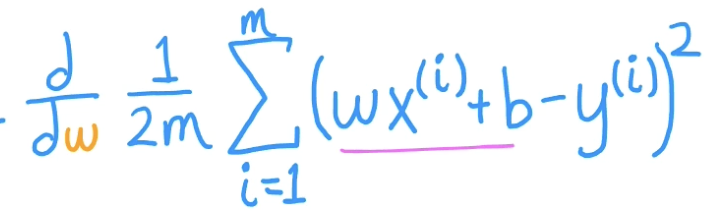 d/dw 1/2m Σ_{i=1}^{m} (wx^{(i)}+b-y^{(i)})^2